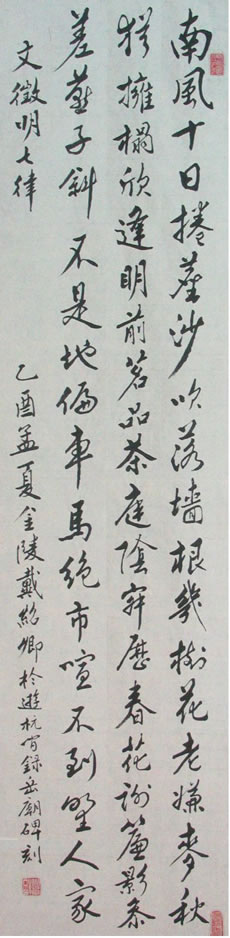 南風十日捲塵沙吹落墻根幾樹花老嫌麥秋
猶擁榻欣逢明前茗品茶庭陰寂歷春花謝簾影參
差燕子斜不是地偏車馬絕市喧不到野人家
文徵明七律
乙酉孟夏金陵戴紹卿於遊杭時錄岳廟碑刻